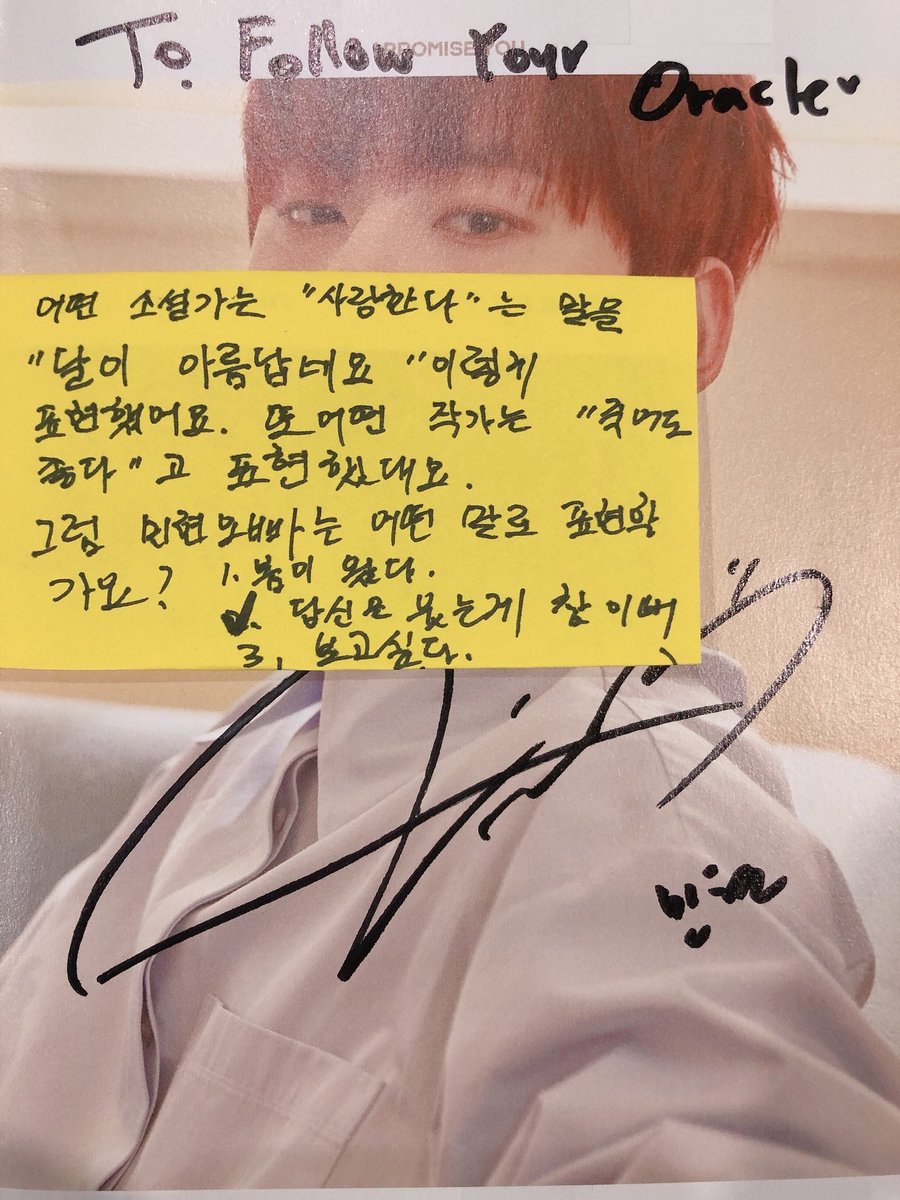 To. Follow Your
PROMISE YOU
Oracle
어떤 소설가는 "사랑한다"는 말을
"달이 아름답네요"이렇게
표현했어요. 또어떤 작가는 "죽어도
좋다"고 표현했대요.
그럼 민현오빠는 어떤 말로 표현할
가요? 1. 봄이 왔다.
2. 답신으 묻는게 참 이뻐
3. 보고싶다.